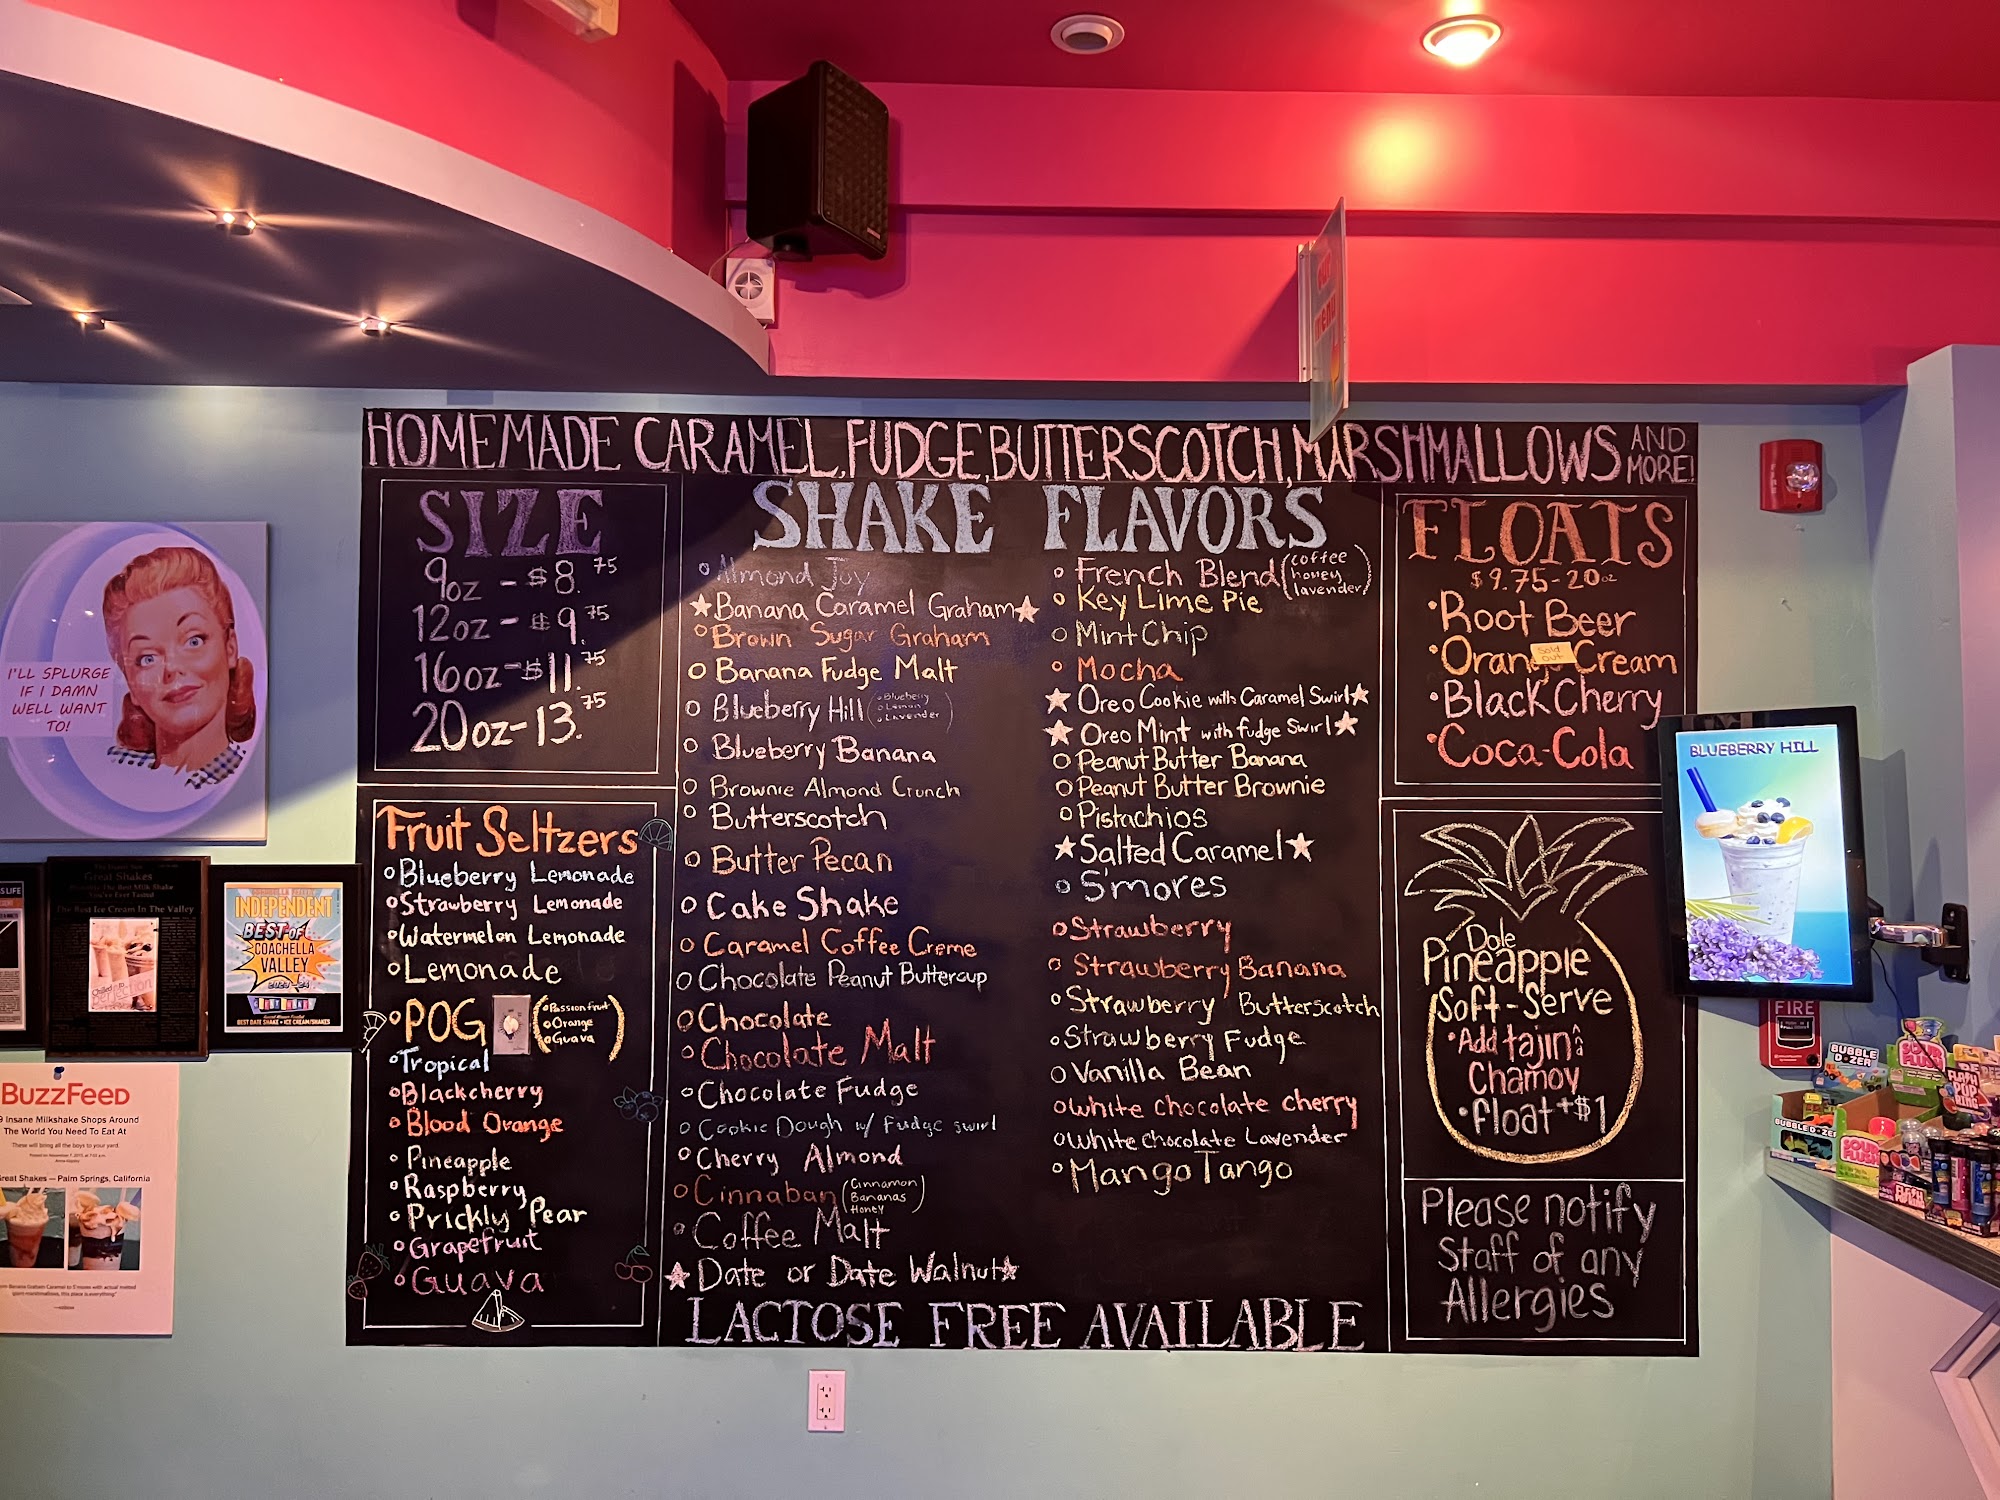 HOMEMADE CARAMEL, FUDGE, BUTTERSCOTCH, MARSHMALLOWS AND MORE!
SIZE
9oz - $8.75
12oz - $9.75
16oz - $11.75
20oz - 13.75
Fruit Seltzers
Blueberry Lemonade
Strawberry Lemonade
Watermelon Lemonade
Lemonade
POG (Passionfruit
Orange
Guava)
Tropical
Blackcherry
Blood Orange
Pineapple
Raspberry
Prickly Pear
Grapefruit
Guava
SHAKE FLAVORS
Almond Joy
Banana Caramel Graham
Brown Sugar Graham
Banana Fudge Malt
Blueberry Hill (Blueberry
Lemon
Lavender)
Blueberry Banana
Brownie Almond Crunch
Butterscotch
Butter Pecan
Cake Shake
Caramel Coffee Creme
Chocolate Peanut Buttercup
Chocolate
Chocolate Malt
Chocolate Fudge
Cookie Dough w/ Fudge swirl
Cherry Almond
Cinnaban (Cinnamon
Bananas
Honey)
Coffee Malt
Date or Date Walnut
French Blend (coffee
honey
lavender)
Key Lime Pie
Mint Chip
Mocha
Oreo Cookie with Caramel Swirl
Oreo Mint with fudge Swirl
Peanut Butter Banana
Peanut Butter Brownie
Pistachios
Salted Caramel
S'mores
Strawberry
Strawberry Banana
Strawberry Butterscotch
Strawberry Fudge
Vanilla Bean
white chocolate cherry
white chocolate Lavender
Mango Tango
LACTOSE FREE AVAILABLE
FLOATS
$9.75-20oz
Root Beer
Orange Cream
Sold out
Black Cherry
Coca-Cola
Dole
Pineapple
Soft-Serve
Add tajin
Chamoy
float +$1
Please notify
Staff of any
Allergies
menu
I'LL SPLURGE
IF I DAMN
WELL WANT
TO!
Great Shakes
The Best Ice Cream In The Valley
INDEPENDENT
BEST of
COACHELLA
VALLEY
2023-24
BEST DATE SHAKE • ICE CREAM/SHAKES
BuzzFeed
9 Insane Milkshake Shops Around
The World You Need To Eat At
These will bring all the boys to your yard.
Great Shakes — Palm Springs, California
BLUEBERRY HILL
FIRE
BUBBLE DOZER
BUBBLE DOZER